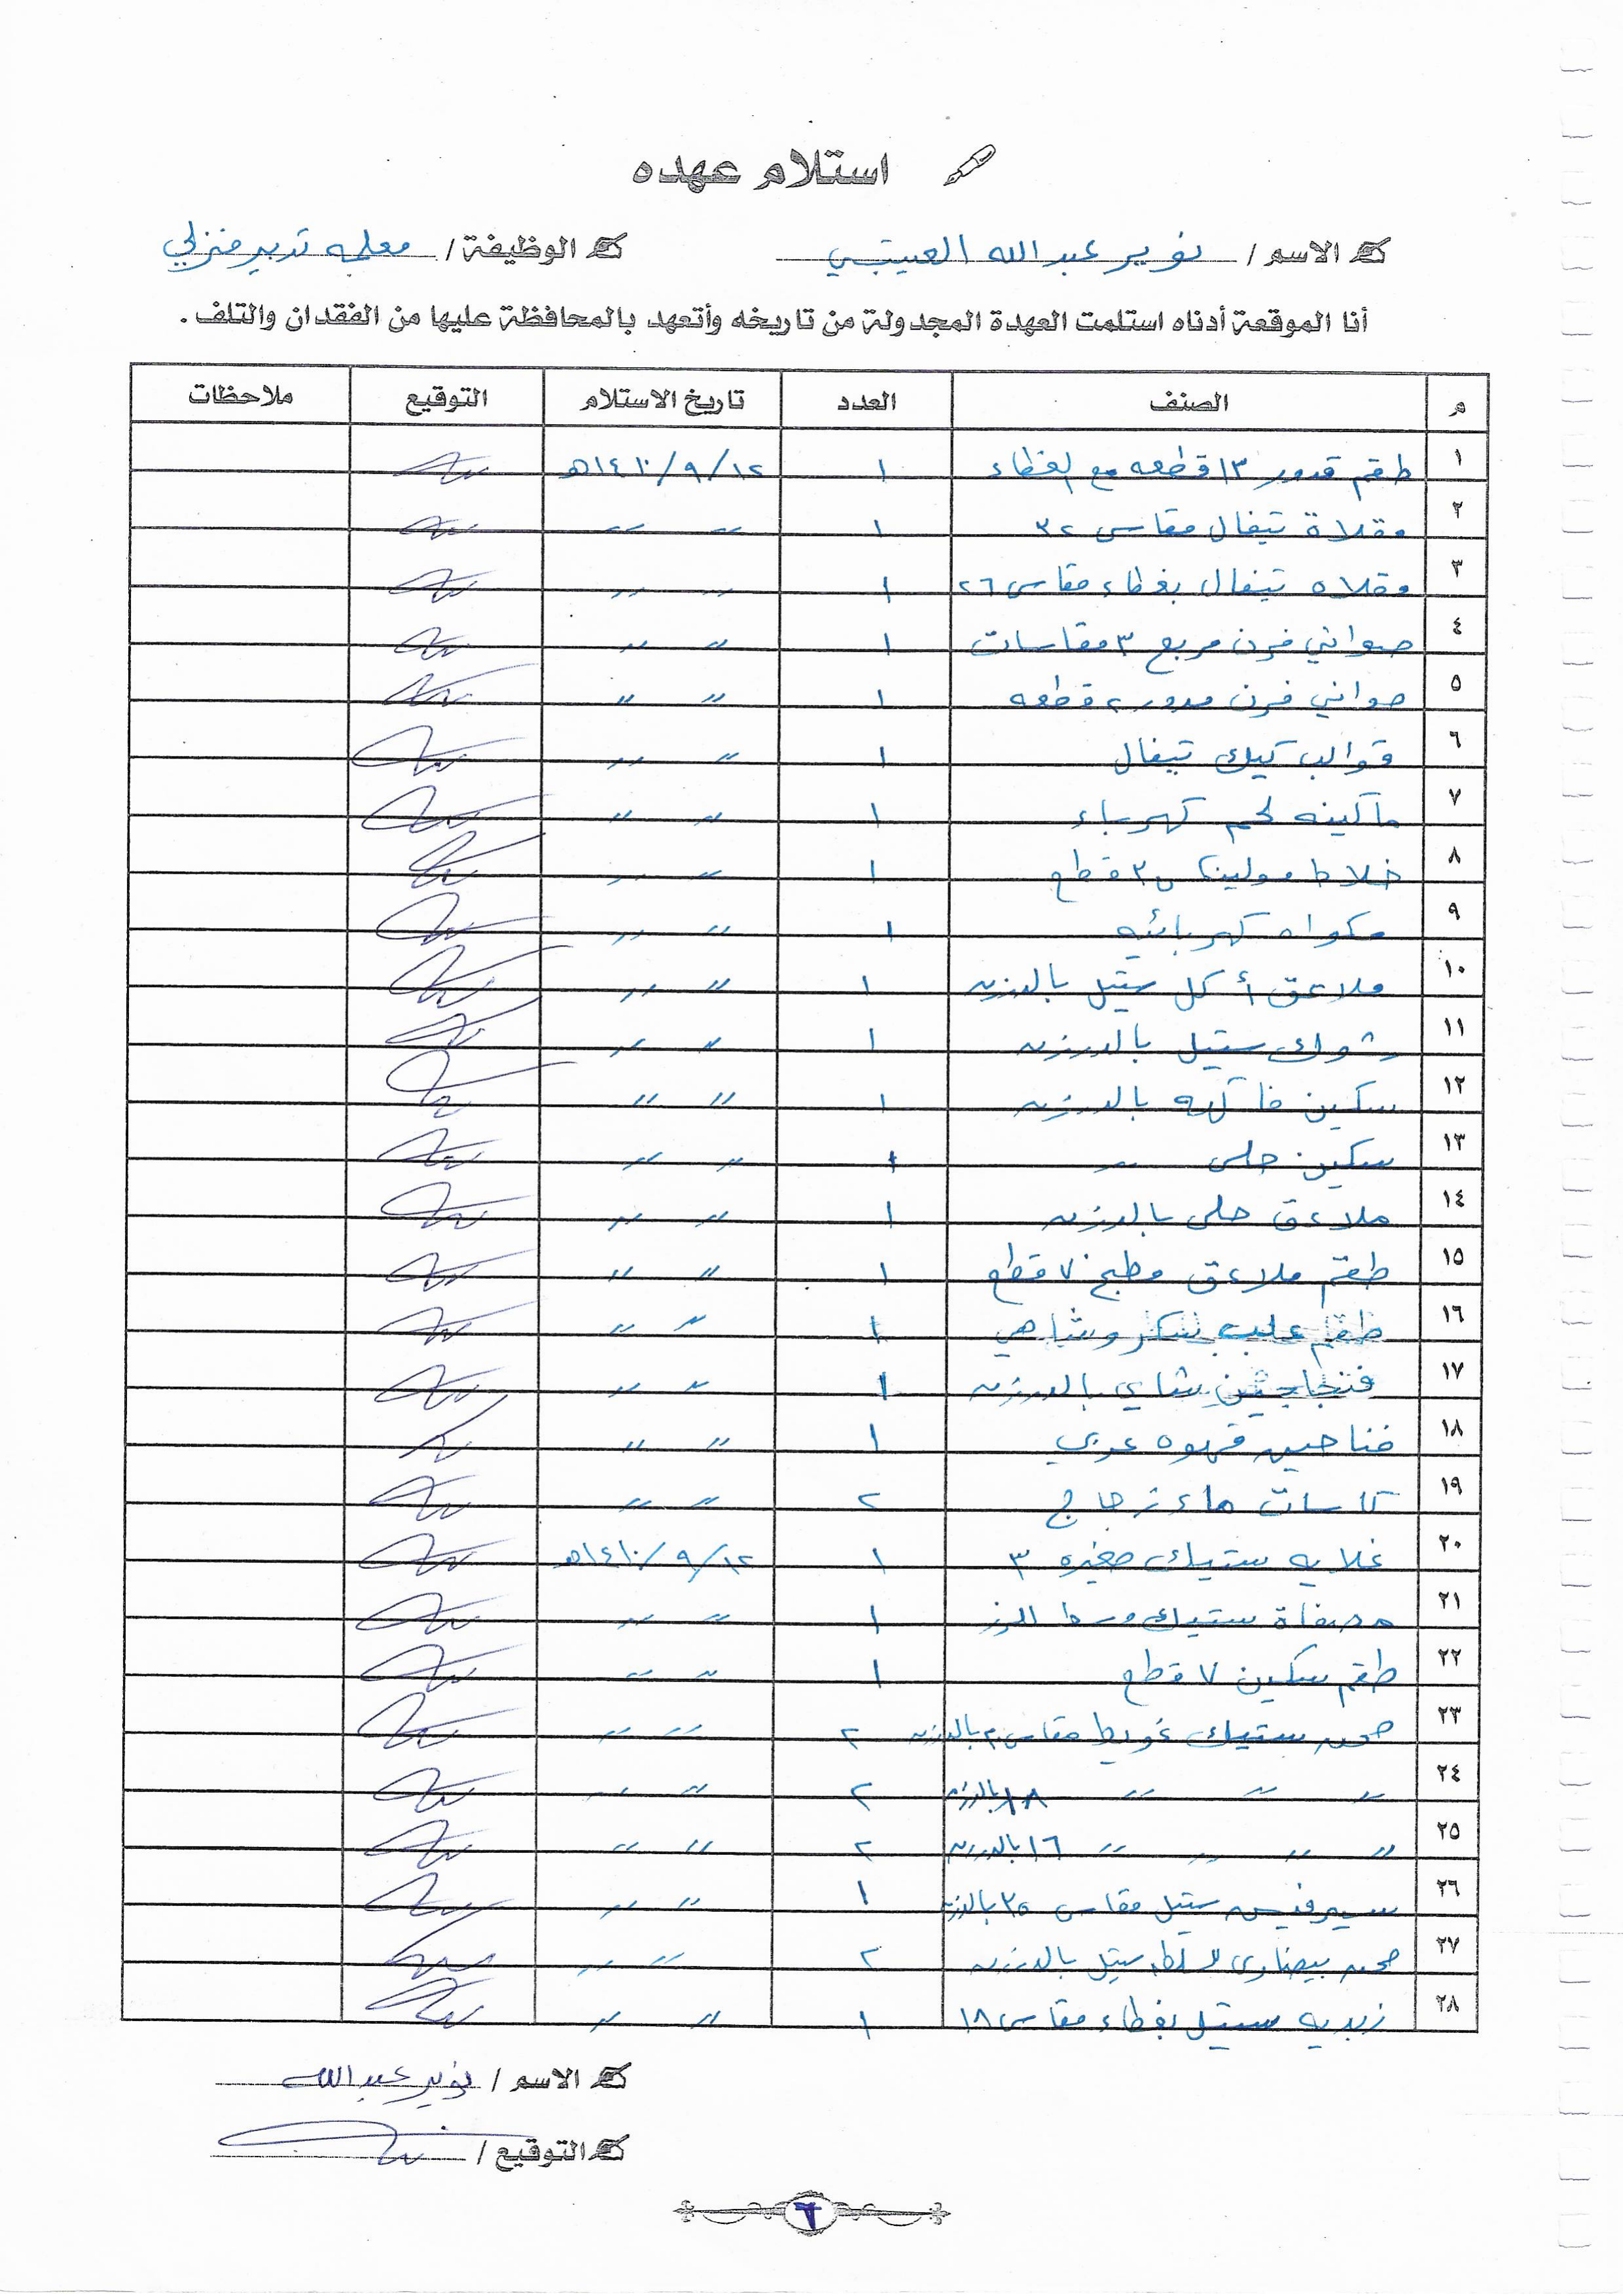 استلام عهده
الاسم / نوير عبدالله العتيبي الوظيفة / معلمه تدبير منزلي
أنا الموقعة أدناه استلمت العهدة المجدولة من تاريخه وأتعهد بالمحافظة عليها من الفقدان والتلف .
م الصنف العدد تاريخ الاستلام التوقيع ملاحظات
١ طقم قدور ١٣ قطعه مع الغطاء ١ ١٢/٩/١٤١٠هـ
٢ مقلاة تيفال مقاس ٣٢ ١ 〃 〃
٣ مقلاه تيفال بغطاء مقاس ٢٦ ١ 〃 〃
٤ صواني فرن مربع ٣ مقاسات ١ 〃 〃
٥ صواني فرن مدور ٢ قطعه ١ 〃 〃
٦ قوالب كيك تيفال ١ 〃 〃
٧ ماكينه لحم كهرباء ١ 〃 〃
٨ خلاط مولينكس ٣ قطع ١ 〃 〃
٩ مكواه كهربائيه ١ 〃 〃
١٠ ملاعق أكل ستيل بالدرزن ١ 〃 〃
١١ شوك ستيل بالدرزن ١ 〃 〃
١٢ سكين فاكهه بالدرزن ١ 〃 〃
١٣ سكين حلى 〃 ١ 〃 〃
١٤ ملاعق حلى بالدرزن ١ 〃 〃
١٥ طقم ملاعق مطبخ ٧ قطع ١ 〃 〃
١٦ طقم علب سكر وشاهي ١ 〃 〃
١٧ شاي بالدرزن ١ 〃 〃
١٨ فناجين قهوه عربي ١ 〃 〃
١٩ كاسات ماء زجاج ٢ 〃 〃
٢٠ غلايه ستيك صغيره ٣ ١ ١٢/٩/١٤١٠هـ
٢١ مصفاة ستيك وسط للرز ١ 〃 〃
٢٢ طقم سكين ٧ قطع ١ 〃 〃
٢٣ صحن ستيك غويط مقاس ٢٠ بالدرزن ٢ 〃 〃
٢٤ 〃 〃 〃 〃 ١٨ بالدرزن ٢ 〃 〃
٢٥ 〃 〃 〃 〃 ١٦ بالدرزن ٢ 〃 〃
٢٦ سيرفيس ستيل مقاس ٢٥ بالدرزن ١ 〃 〃
٢٧ صحن بيضاوي سلطه ستيل بالدرزن ٢ 〃 〃
٢٨ زبديه ستيل بغطاء مقاس ١٨ ١ 〃 〃
الاسم / نوير عبدالله
التوقيع /
٦